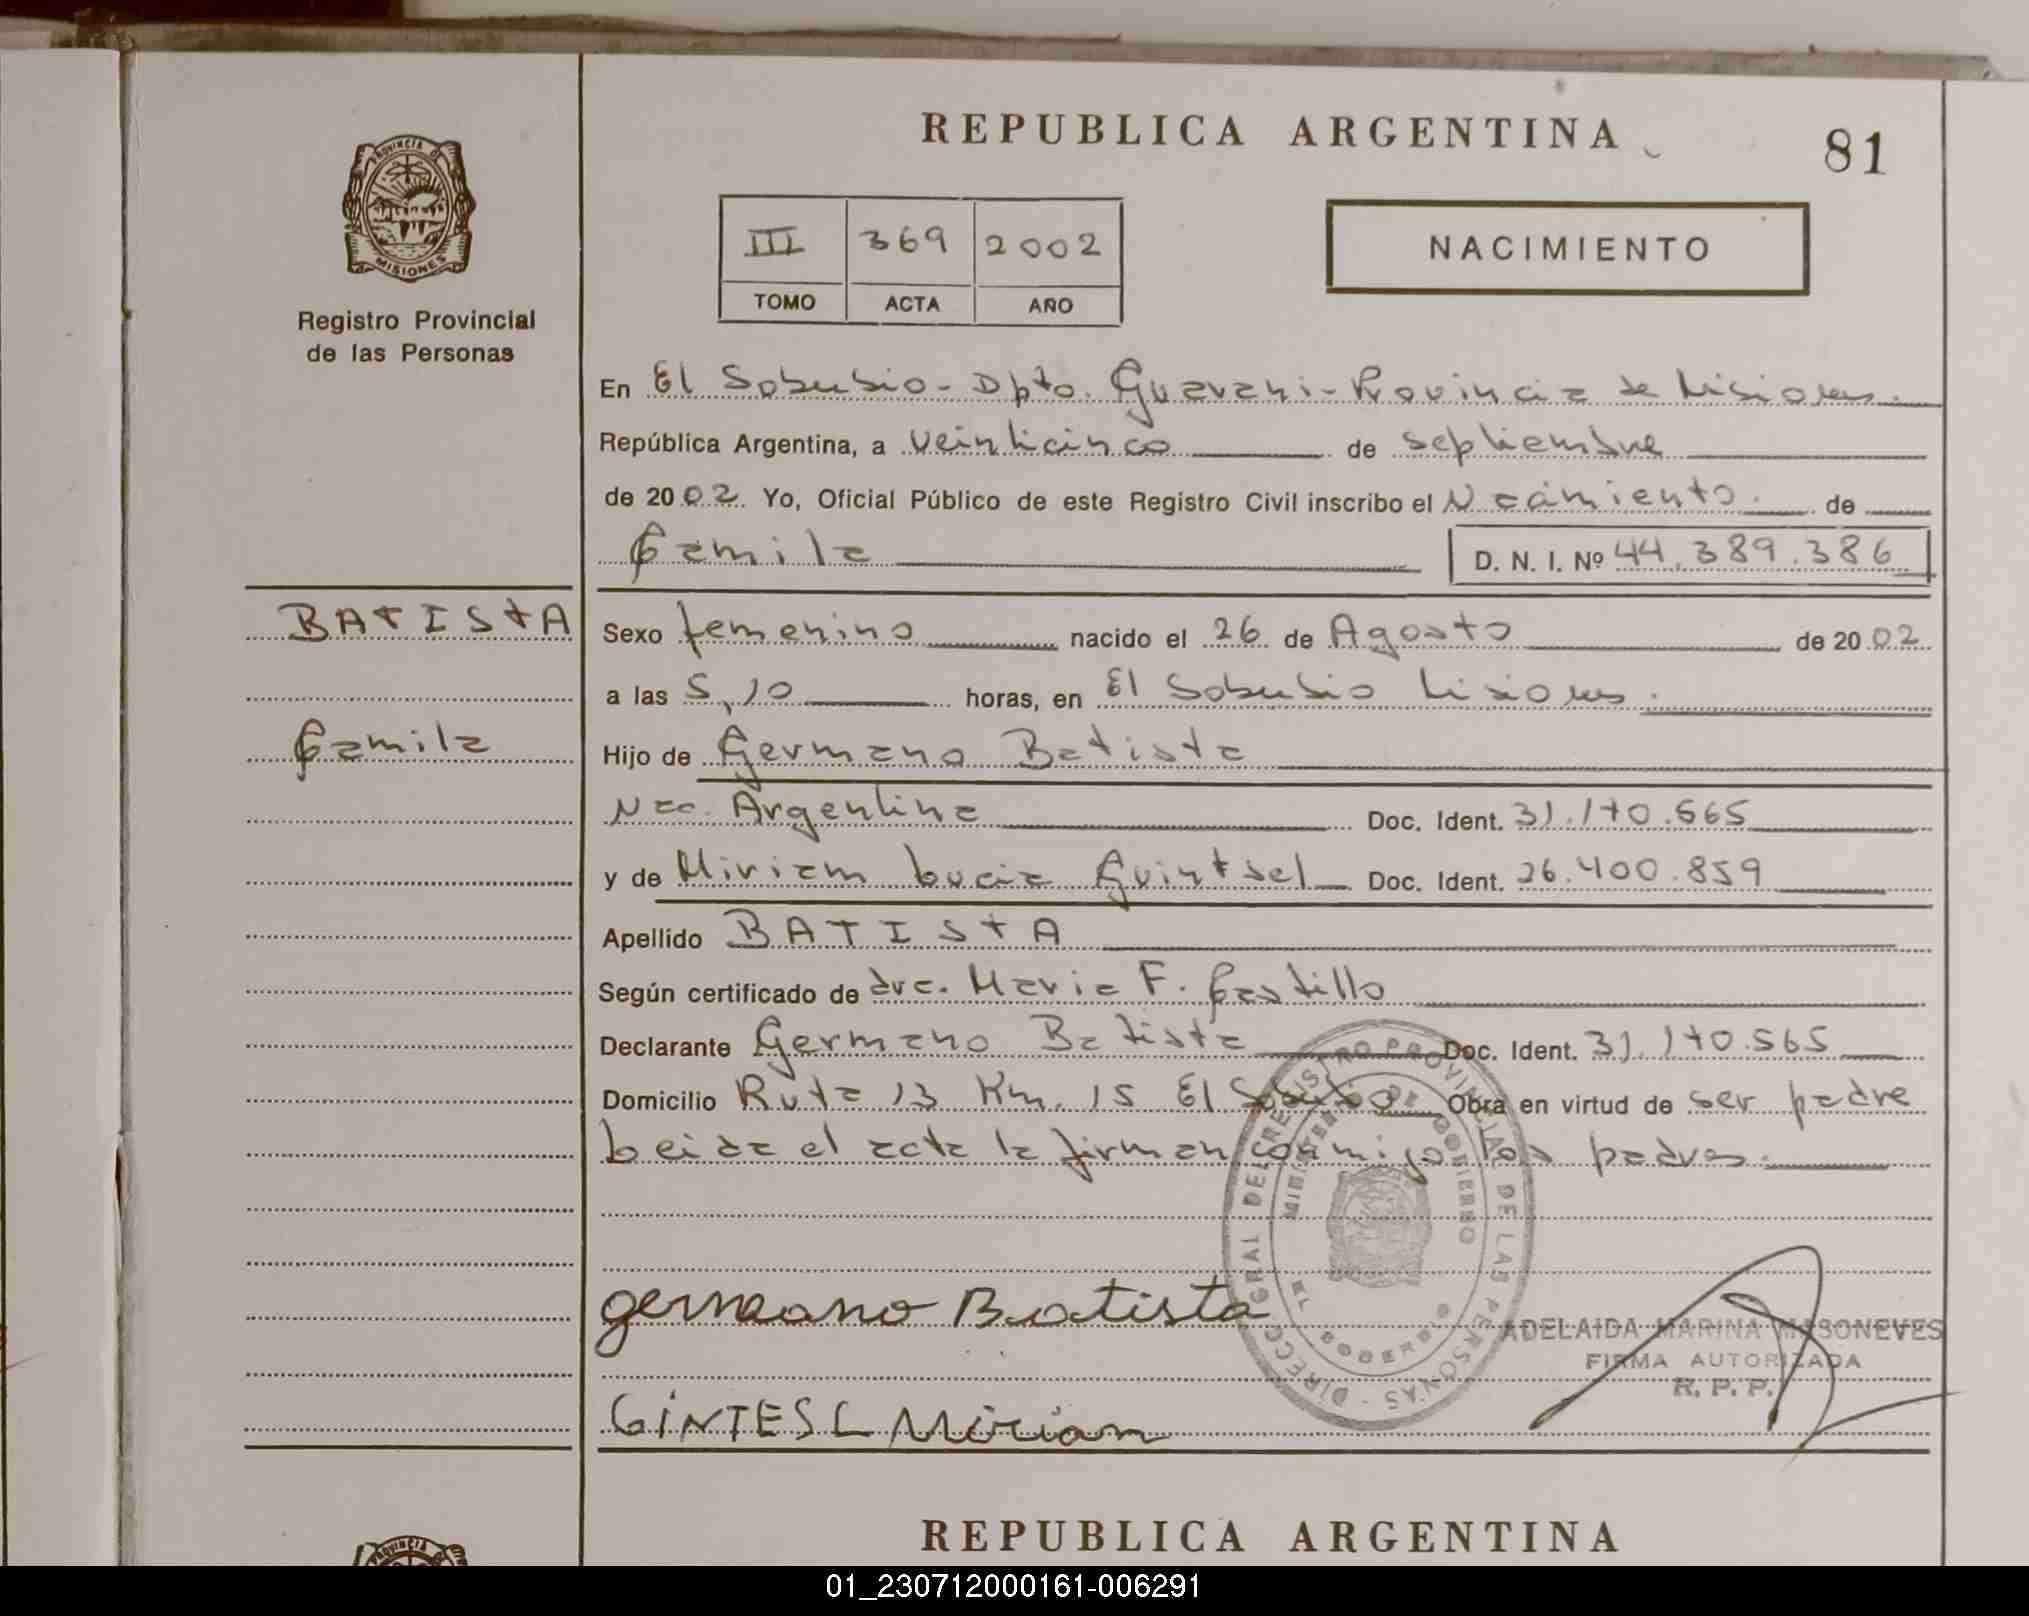 REPUBLICA ARGENTINA
81
PROVINCIA DE
MISIONES
Registro Provincial
de las Personas
III 369 2002
TOMO ACTA AÑO
NACIMIENTO
En El Soberbio - Dpto. Guarani - Provincia de Misiones.
República Argentina, a veinticinco de septiembre
de 2002 Yo, Oficial Público de este Registro Civil inscribo el Nacimiento de
Camila D. N. I. Nº 44.389.386
BATISTA
Camila
Sexo femenino nacido el 26 de Agosto de 2002
a las 5,10 horas, en El Soberbio Misiones.
Hijo de Germano Batista
Nac. Argentina Doc. Ident. 31.170.565
y de Miriam Lucia Guintsel Doc. Ident. 26.400.859
Apellido BATISTA
Según certificado de dra. Maria F. Castillo
Declarante Germano Batista Doc. Ident. 31.170.565
Domicilio Ruta 13 Km. 15 El Soberbio Obra en virtud de ser padre
Leida el acta la firman conmigo los padres.
DIRECC. GRAL DEL REGISTRO PROVINCIAL DE LAS PERSONAS
MINISTERIO DE GOBIERNO
EL SOBERBIO
germano Batista
ADELAIDA MARINA MASONEVES
FIRMA AUTORIZADA
R. P. P.
GiNTESL Miriam
REPUBLICA ARGENTINA
PROVINCIA DE
01_230712000161-006291